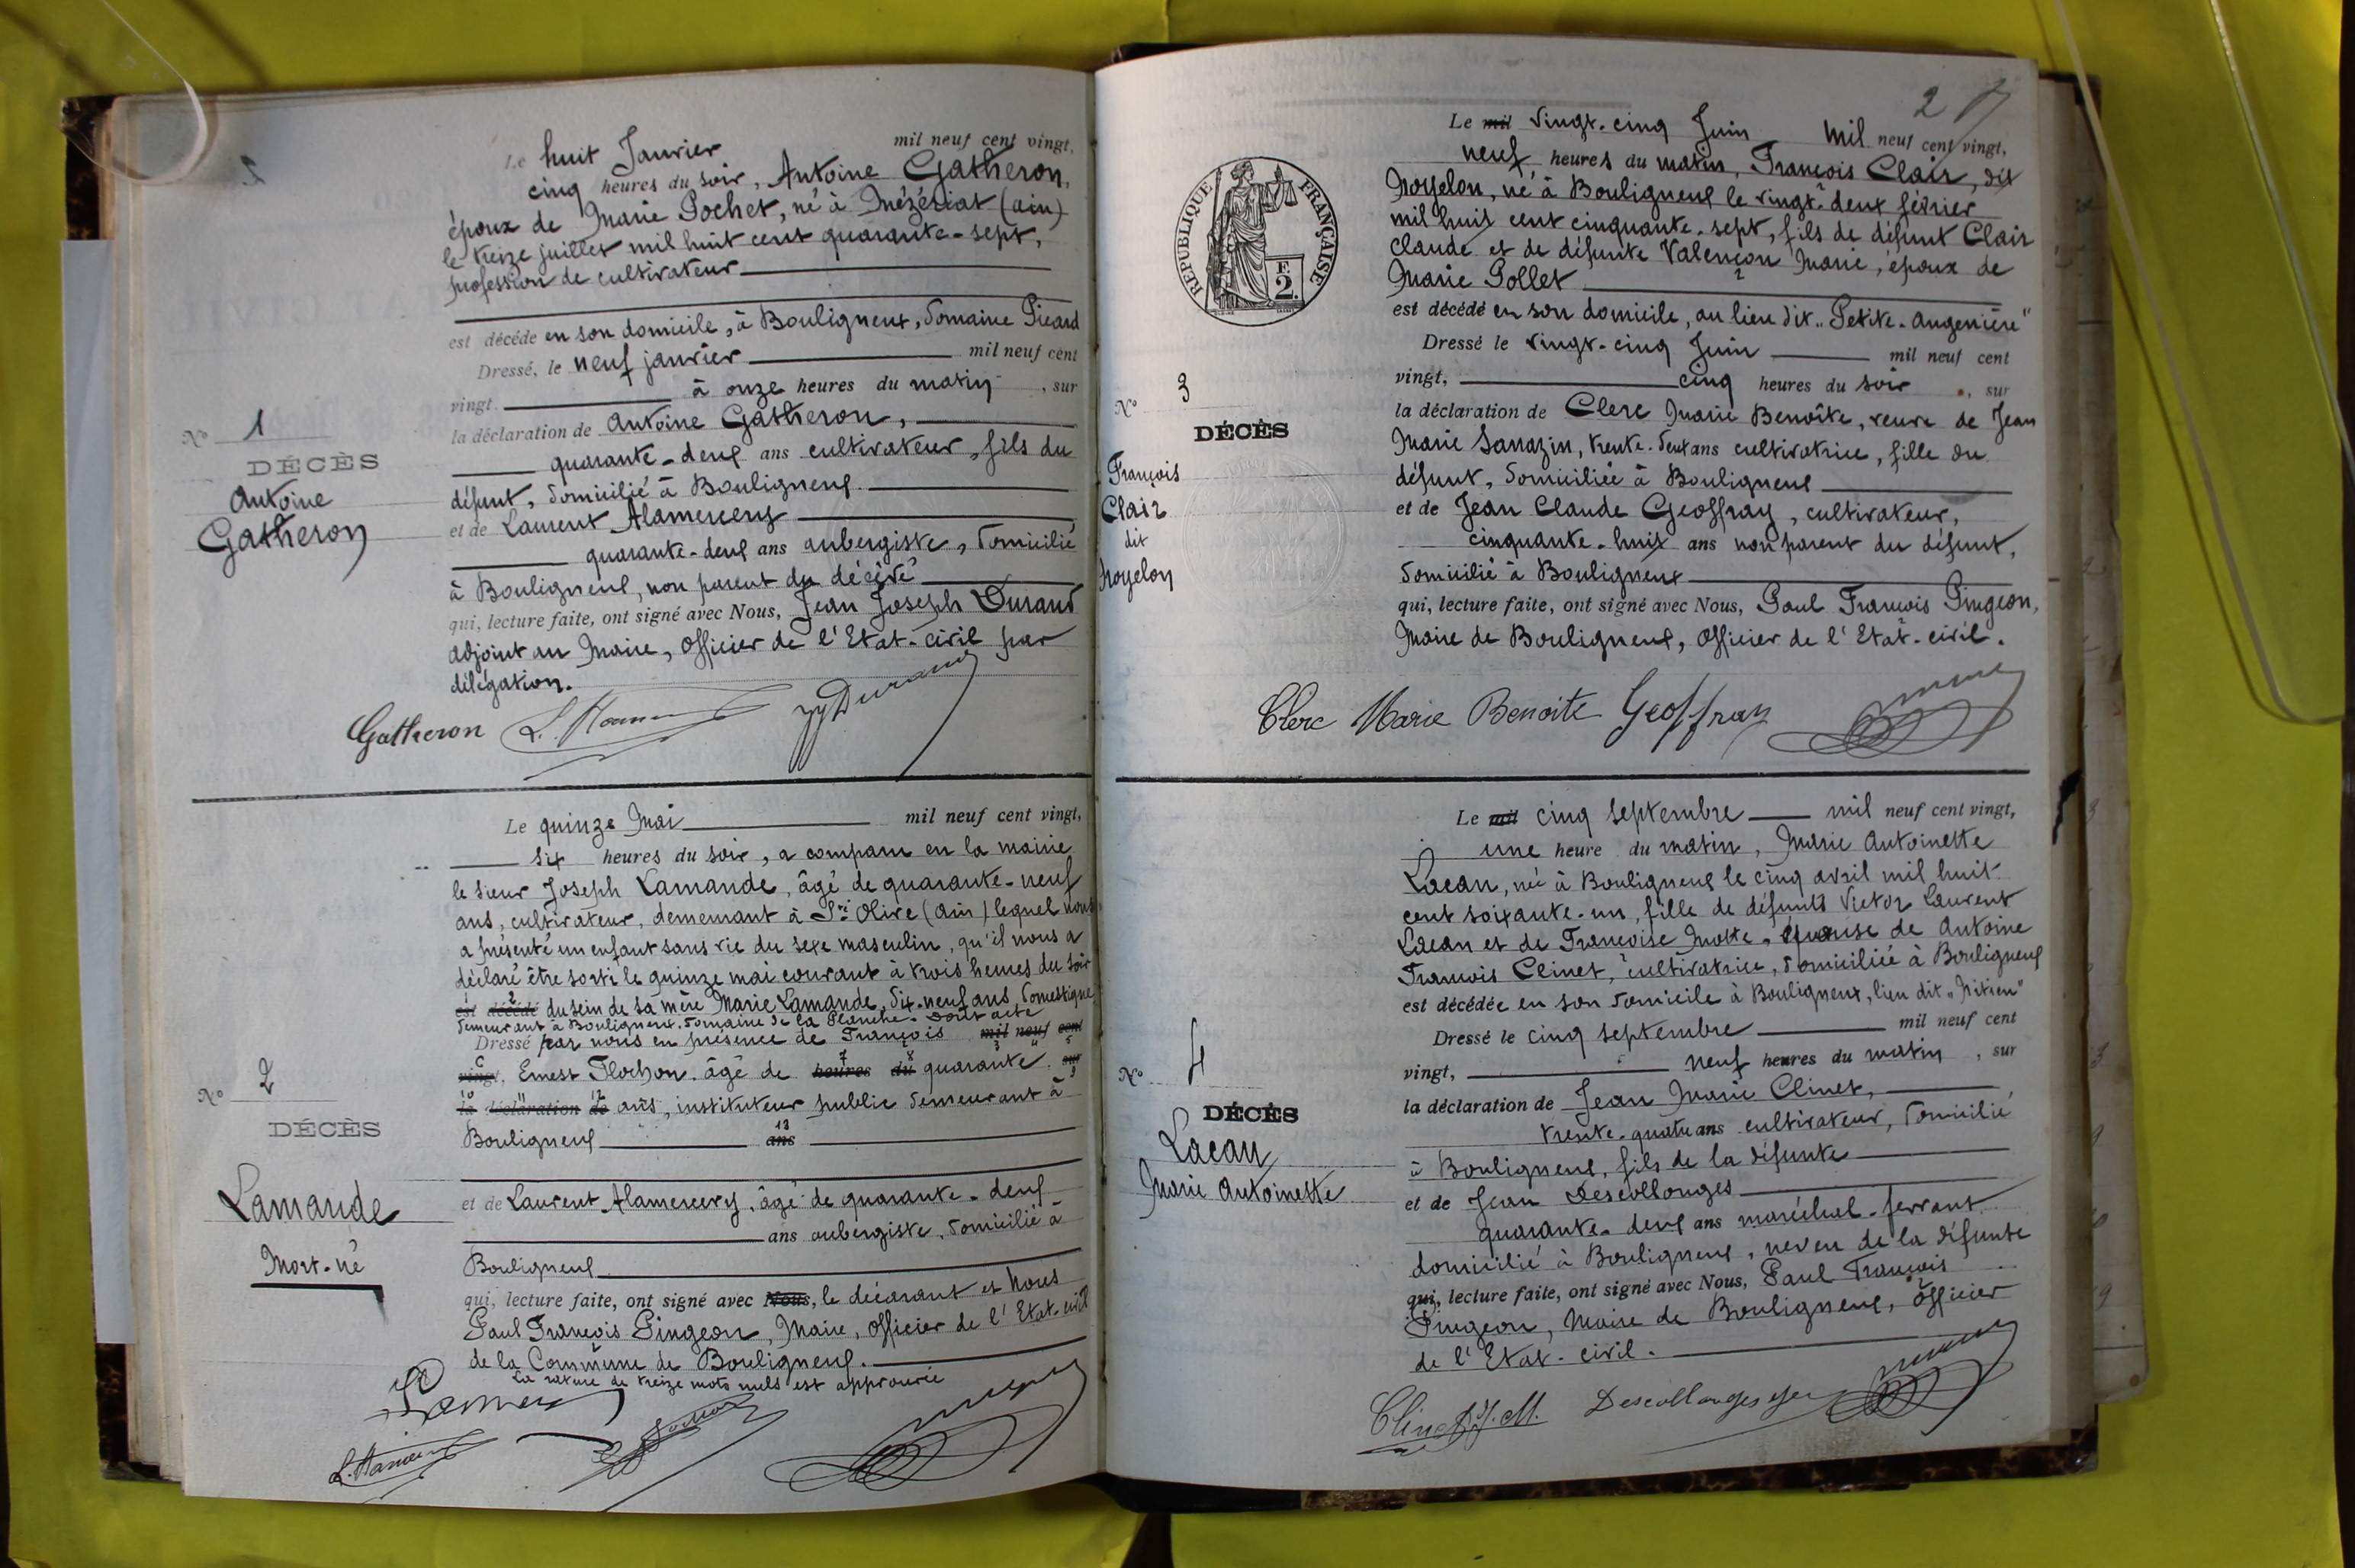 Le huit Janvier mil neuf cent vingt,
cinq heures du soir, Antoine Gatheron,
époux de Marie Pochet, né à Mézériat (ain)
le treize juillet mil huit cent quarante-sept,
profession de cultivateur
est décédé en son domicile, à Bouligneux, Domaine Picard
Dressé, le neuf janvier mil neuf cent
vingt à onze heures du matin, sur
la déclaration de Antoine Gatheron,
quarante-deux ans cultivateur, fils du
défunt, domicilié à Bouligneux
et de Laurent Alamercery
quarante-deux ans aubergiste, domicilié
à Bouligneux, non parent du décédé
qui, lecture faite, ont signé avec Nous, Jean Joseph Durand
adjoint au Maire, Officier de l'Etat-civil par
délégation.
Gatheron JJ Durand
N° 1
DÉCÈS
Antoine
Gatheron
Le quinze Mai mil neuf cent vingt,
six heures du soir, a comparu en la mairie
le sieur Joseph Lamande, âgé de quarante-neuf
ans, cultivateur, demeurant à Ste Olive (Ain) lequel nous
a présenté un enfant sans vie du sexe masculin, qu'il nous a
déclaré être sorti le quinze mai courant à trois heures du soir
est décédé du sein de sa mère Marie Lamande, dix-neuf ans, domestique
demeurant à Bouligneux, domaine de la Planche. Dont acte
Dressé par nous en présence de François mil neuf cent
vingt, Ernest Flochon, âgé de heures du quarante sur
la déclaration de ans, instituteur public demeurant à
Bouligneux ans
et de Laurent Alamercery, âgé de quarante-deux
ans aubergiste, domicilié à
Bouligneux
qui, lecture faite, ont signé avec Nous, le décarant et Nous
Paul François Pingeon, Maire, Officier de l'Etat-civil
de la Commune de Bouligneux.
La rature de treize mots nuls est approuvée
N° 2
DÉCÈS
Lamande
Mort-né
2
RÉPUBLIQUE FRANÇAISE
F.
2.
Le mil vingt-cinq Juin mil neuf cent vingt,
neuf heures du matin, François Clair, dit
Noyelon, né à Bouligneux le vingt-deux février
mil huit cent cinquante-sept, fils de défunt Clair
Claude et de défunte Valençon Marie, époux de
Marie Pollet
est décédé en son domicile, au lieu dit "Petite-Augenière"
Dressé le vingt-cinq Juin mil neuf cent
vingt, cinq heures du soir, sur
la déclaration de Clerc Marie Benoîte, veuve de Jean
Marie Sarrazin, trente-deux ans cultivatrice, fille du
défunt, domiciliée à Bouligneux
et de Jean Claude Geoffray, cultivateur,
cinquante-huit ans non parent du défunt,
domicilié à Bouligneux
qui, lecture faite, ont signé avec Nous, Paul François Pingeon,
Maire de Bouligneux, Officier de l'Etat-civil.
Clerc Marie Benoite Geoffray
N° 3
DÉCÈS
François
Clair
dit
Noyelon
Le mil cinq septembre mil neuf cent vingt,
une heure du matin, Marie Antoinette
Lacan, né à Bouligneux le cinq avril mil huit
cent soixante-un, fille de défunts Victor Laurent
Lacan et de Françoise Motte, épouse de Antoine
François Clinet, cultivatrice, domiciliée à Bouligneux
est décédée en son domicile à Bouligneux, lieu dit
Dressé le cinq septembre mil neuf cent
vingt, neuf heures du matin, sur
la déclaration de Jean Marie Clinet,
trente-quatre ans cultivateur, domicilié
à Bouligneux, fils de la défunte
et de Jean Descollonges
quarante-deux ans maréchal-ferrant
domicilié à Bouligneux, neveu de la défunte
qui, lecture faite, ont signé avec Nous, Paul François
Pingeon, Maire de Bouligneux, Officier
de l'Etat-civil.
Clinet J. M. Descollonges
N° 4
DÉCÈS
Lacan
Marie Antoinette